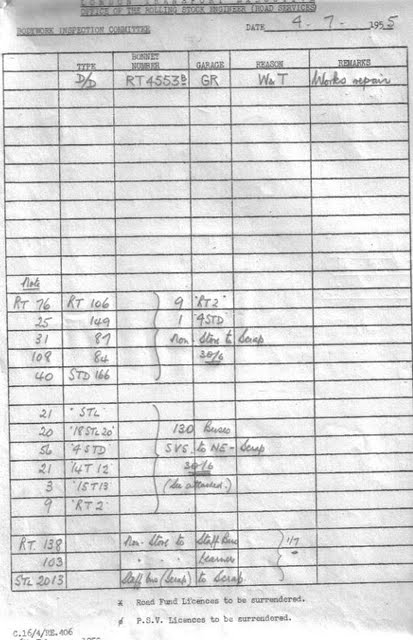 OFFICE OF THE ROLLING STOCK ENGINEER (ROAD SERVICES)
BODYWORK INSPECTION COMMITTEE DATE 4-7-1955
TYPE BONNET NUMBER GARAGE REASON REMARKS
D/D RT4553 GR W&T Works repair
Note
RT 76 RT 106 9 'RT2'
25 149 1 4STD
31 87 Non-Store to Scrap
108 84 30/6
40 STD 166
21 'STL'
20 '18STL20' 130 Buses
56 '4STD' SVS. to NE - Scrap
21 '14T12' 30/6
3 '15T13' (See attached.)
9 'RT2'
RT 138 Non-Store to Staff Bus 1/7
103 " " " Learner "
STL 2013 Staff bus (Scrap) to Scrap.
Road Fund Licences to be surrendered.
P.S.V. Licences to be surrendered.
C.16/4/RE.406